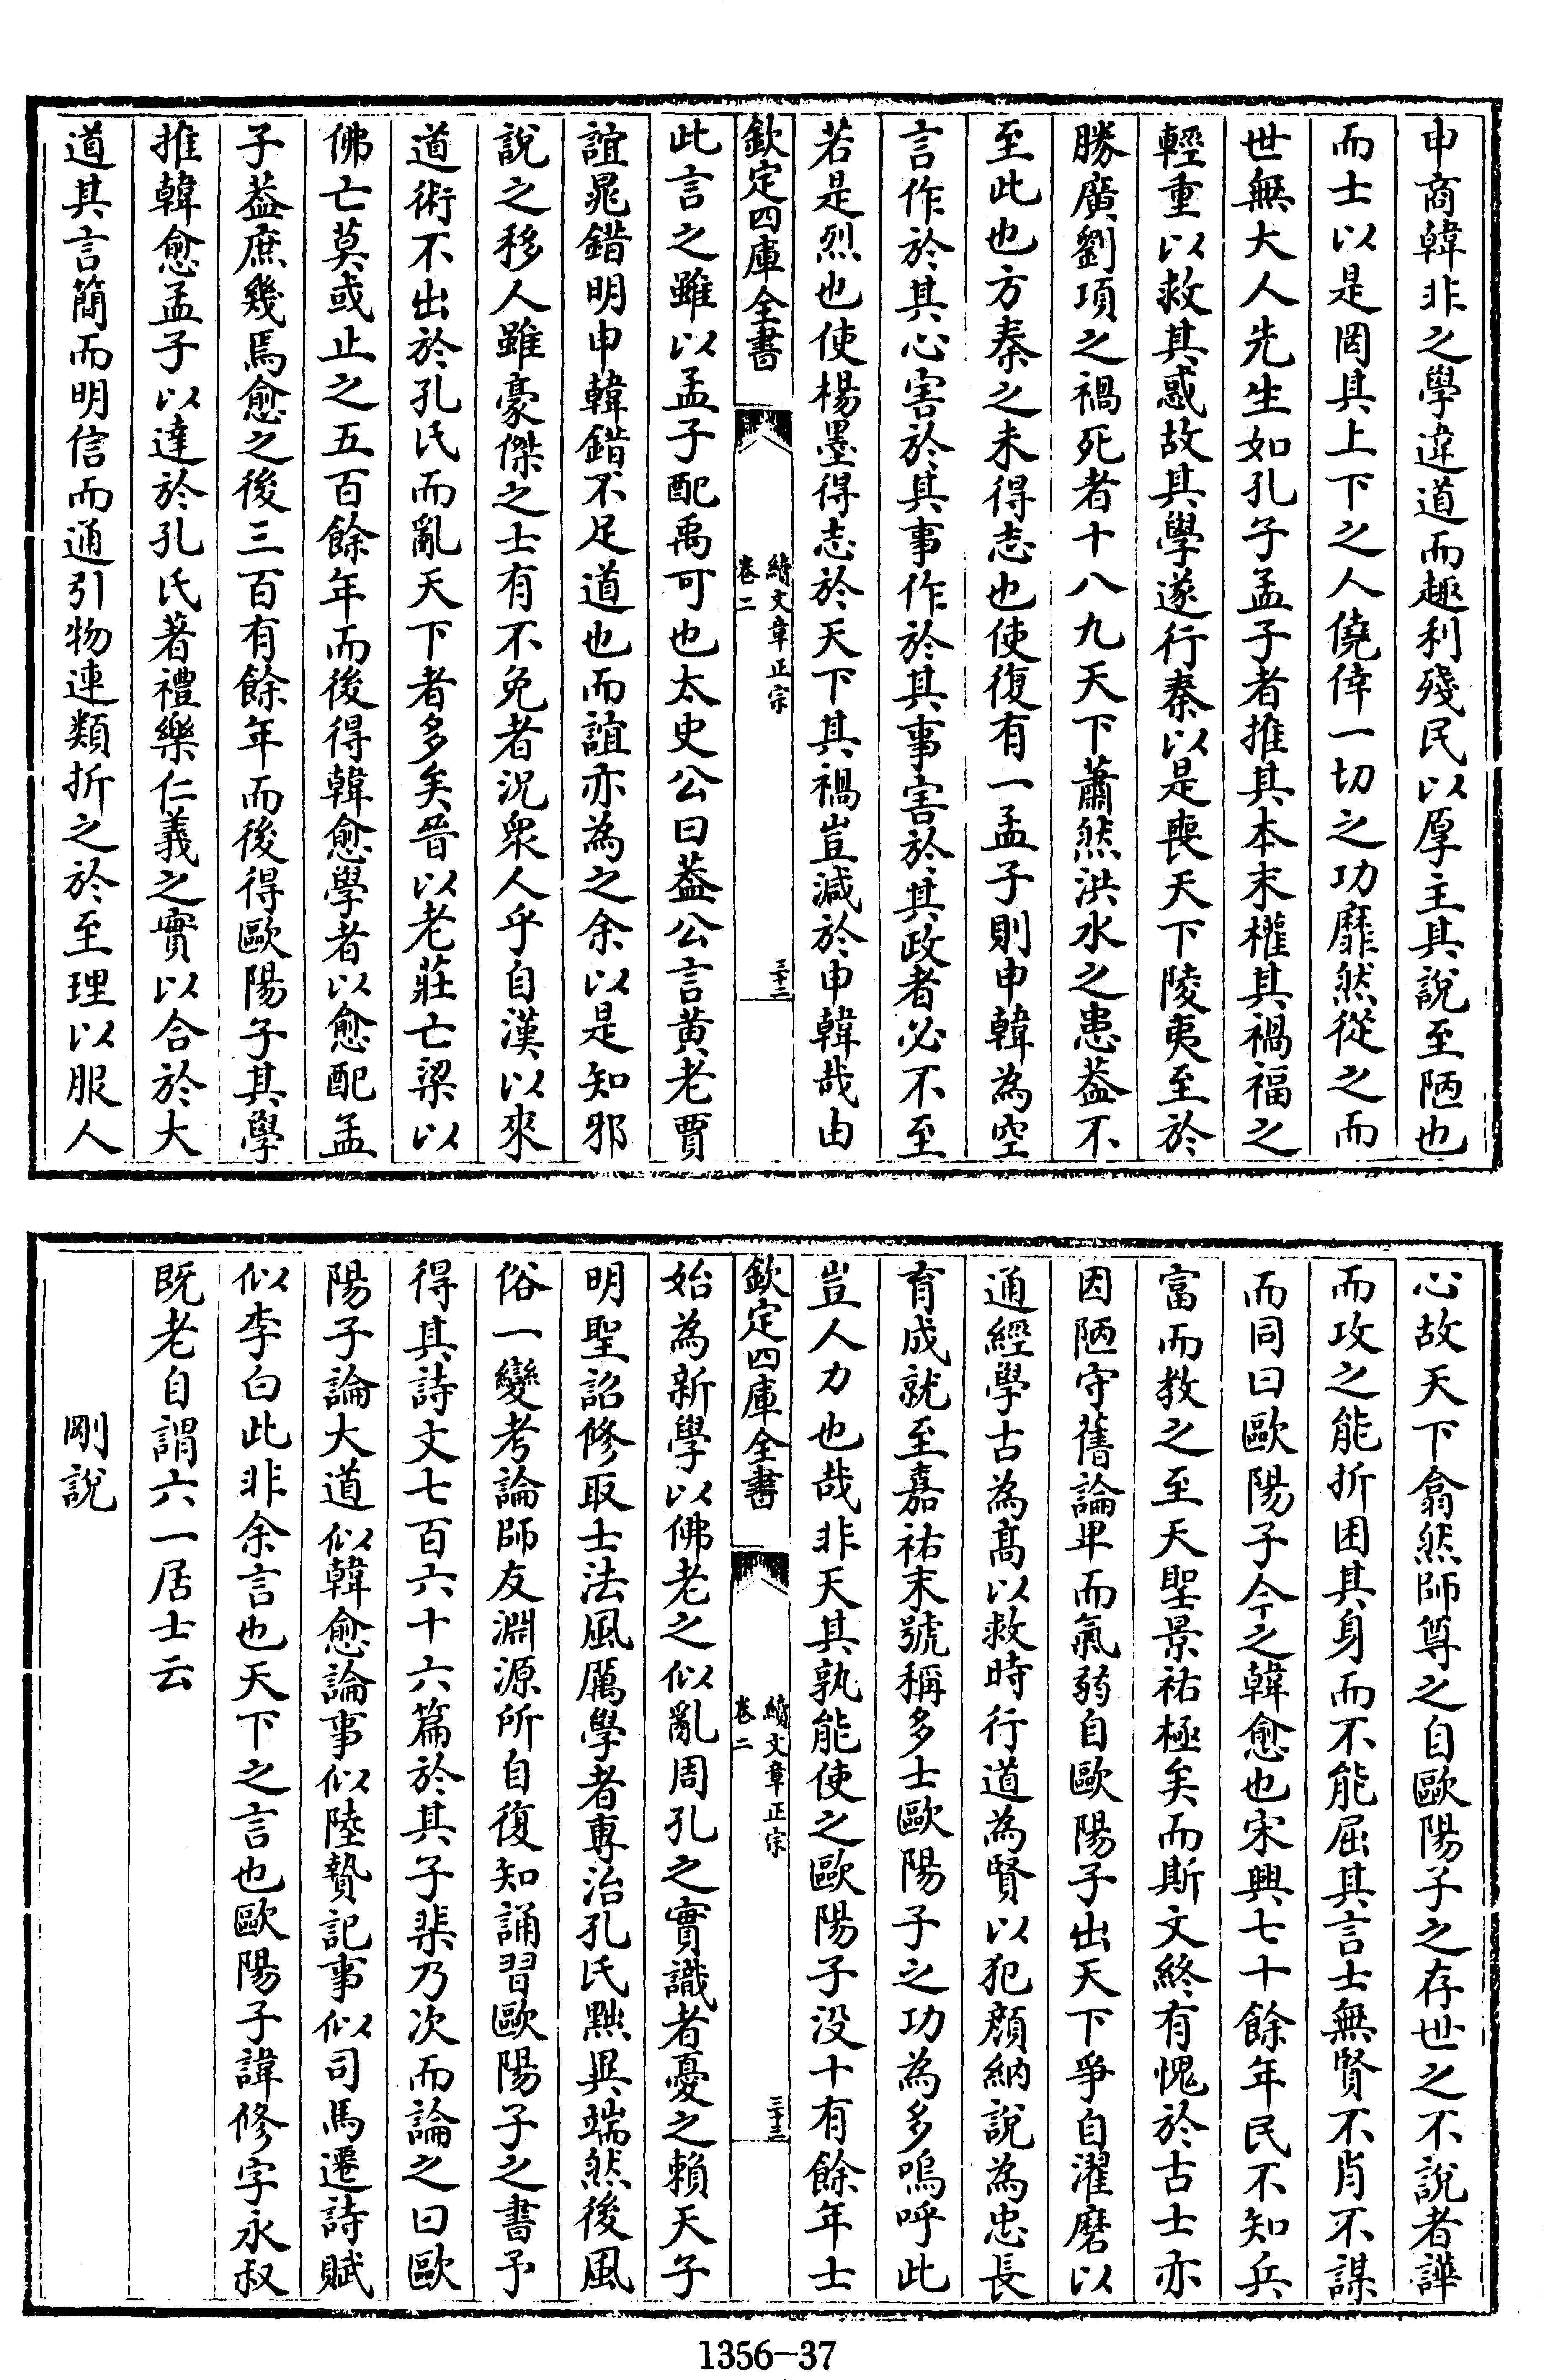 申商韓非之學違道而趣利殘民以厚主其說至陋也
而士以是罔其上下之人僥倖一切之功靡然從之而
世無大人先生如孔子孟子者推其本末權其禍福之
輕重以救其惑故其學遂行秦以是喪天下陵夷至於
勝廣劉項之禍死者十八九天下蕭然洪水之患葢不
至此也方秦之未得志也使復有一孟子則申韓為空
言作於其心害於其事作於其事害於其政者必不至
若是烈也使楊墨得志於天下其禍豈減於申韓哉由
欽定四庫全書
續文章正宗
卷二
三十二
此言之雖以孟子配禹可也太史公曰葢公言黄老賈
誼鼂錯明申韓錯不足道也而誼亦為之余以是知邪
說之移人雖豪傑之士有不免者況衆人乎自漢以來
道術不出於孔氏而亂天下者多矣晉以老莊亡梁以
佛亡莫或止之五百餘年而後得韓愈學者以愈配孟
子葢庶幾焉愈之後三百有餘年而後得歐陽子其學
推韓愈孟子以達於孔氏著禮樂仁義之實以合於大
道其言簡而明信而通引物連類折之於至理以服人
心故天下翕然師尊之自歐陽子之存世之不說者譁
而攻之能折困其身而不能屈其言士無賢不肖不謀
而同曰歐陽子今之韓愈也宋興七十餘年民不知兵
富而教之至天聖景祐極矣而斯文終有愧於古士亦
因陋守舊論卑而氣弱自歐陽子出天下爭自濯磨以
通經學古為髙以救時行道為賢以犯顔納說為忠長
育成就至嘉祐末號稱多士歐陽子之功為多嗚呼此
豈人力也哉非天其孰能使之歐陽子没十有餘年士
欽定四庫全書
續文章正宗
卷二
三十三
始為新學以佛老之似亂周孔之實識者憂之賴天子
明聖詔修取士法風厲學者專治孔氏黜異端然後風
俗一變考論師友淵源所自復知誦習歐陽子之書予
得其詩文七百六十六篇於其子棐乃次而論之曰歐
陽子論大道似韓愈論事似陸贄記事似司馬遷詩賦
似李白此非余言也天下之言也歐陽子諱修字永叔
既老自謂六一居士云
剛說
1356-37